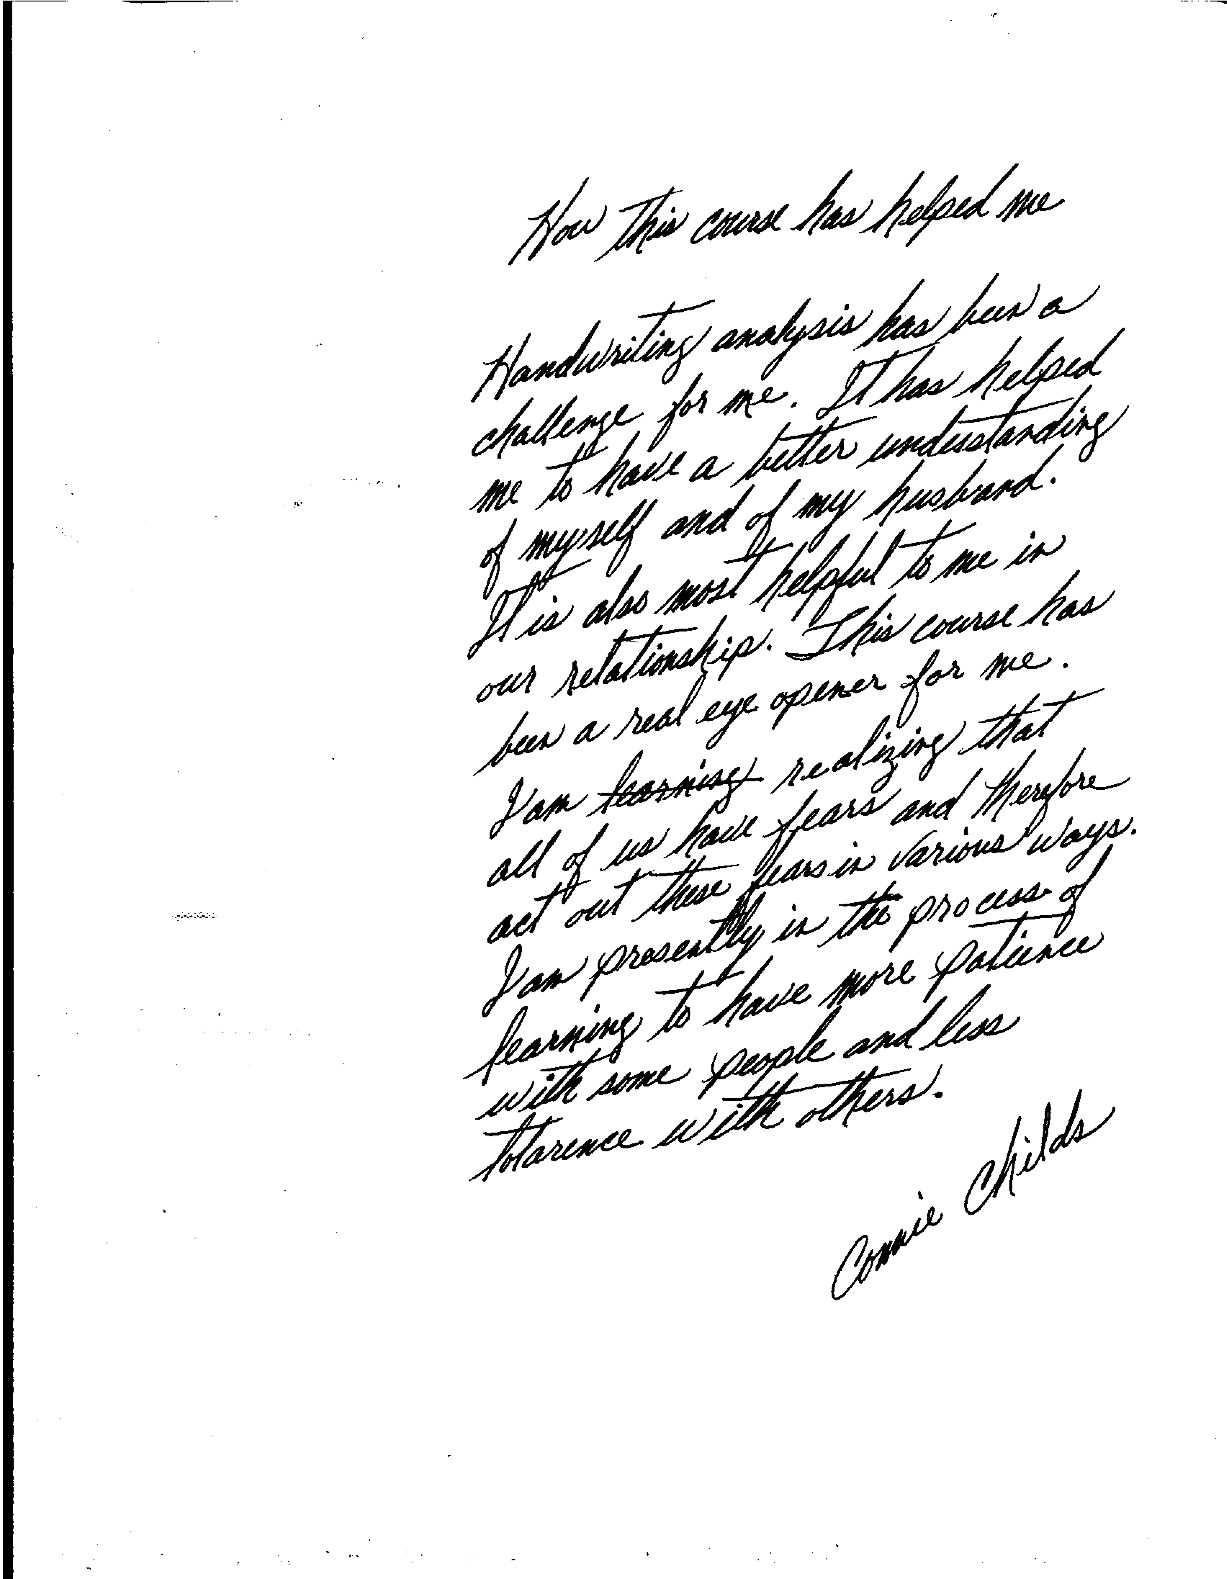 How this course has helped me
Handwriting analysis has been a
challenge for me. It has helped
me to have a better understanding
of myself and of my husband.
It is also most helpful to me in
our relationship. This course has
been a real eye opener for me.
I am learning realizing that
all of us have fears and therefore
act out these fears in various ways.
I am presently in the process of
learning to have more patience
with some people and less
tolarence with others.
Connie Childs